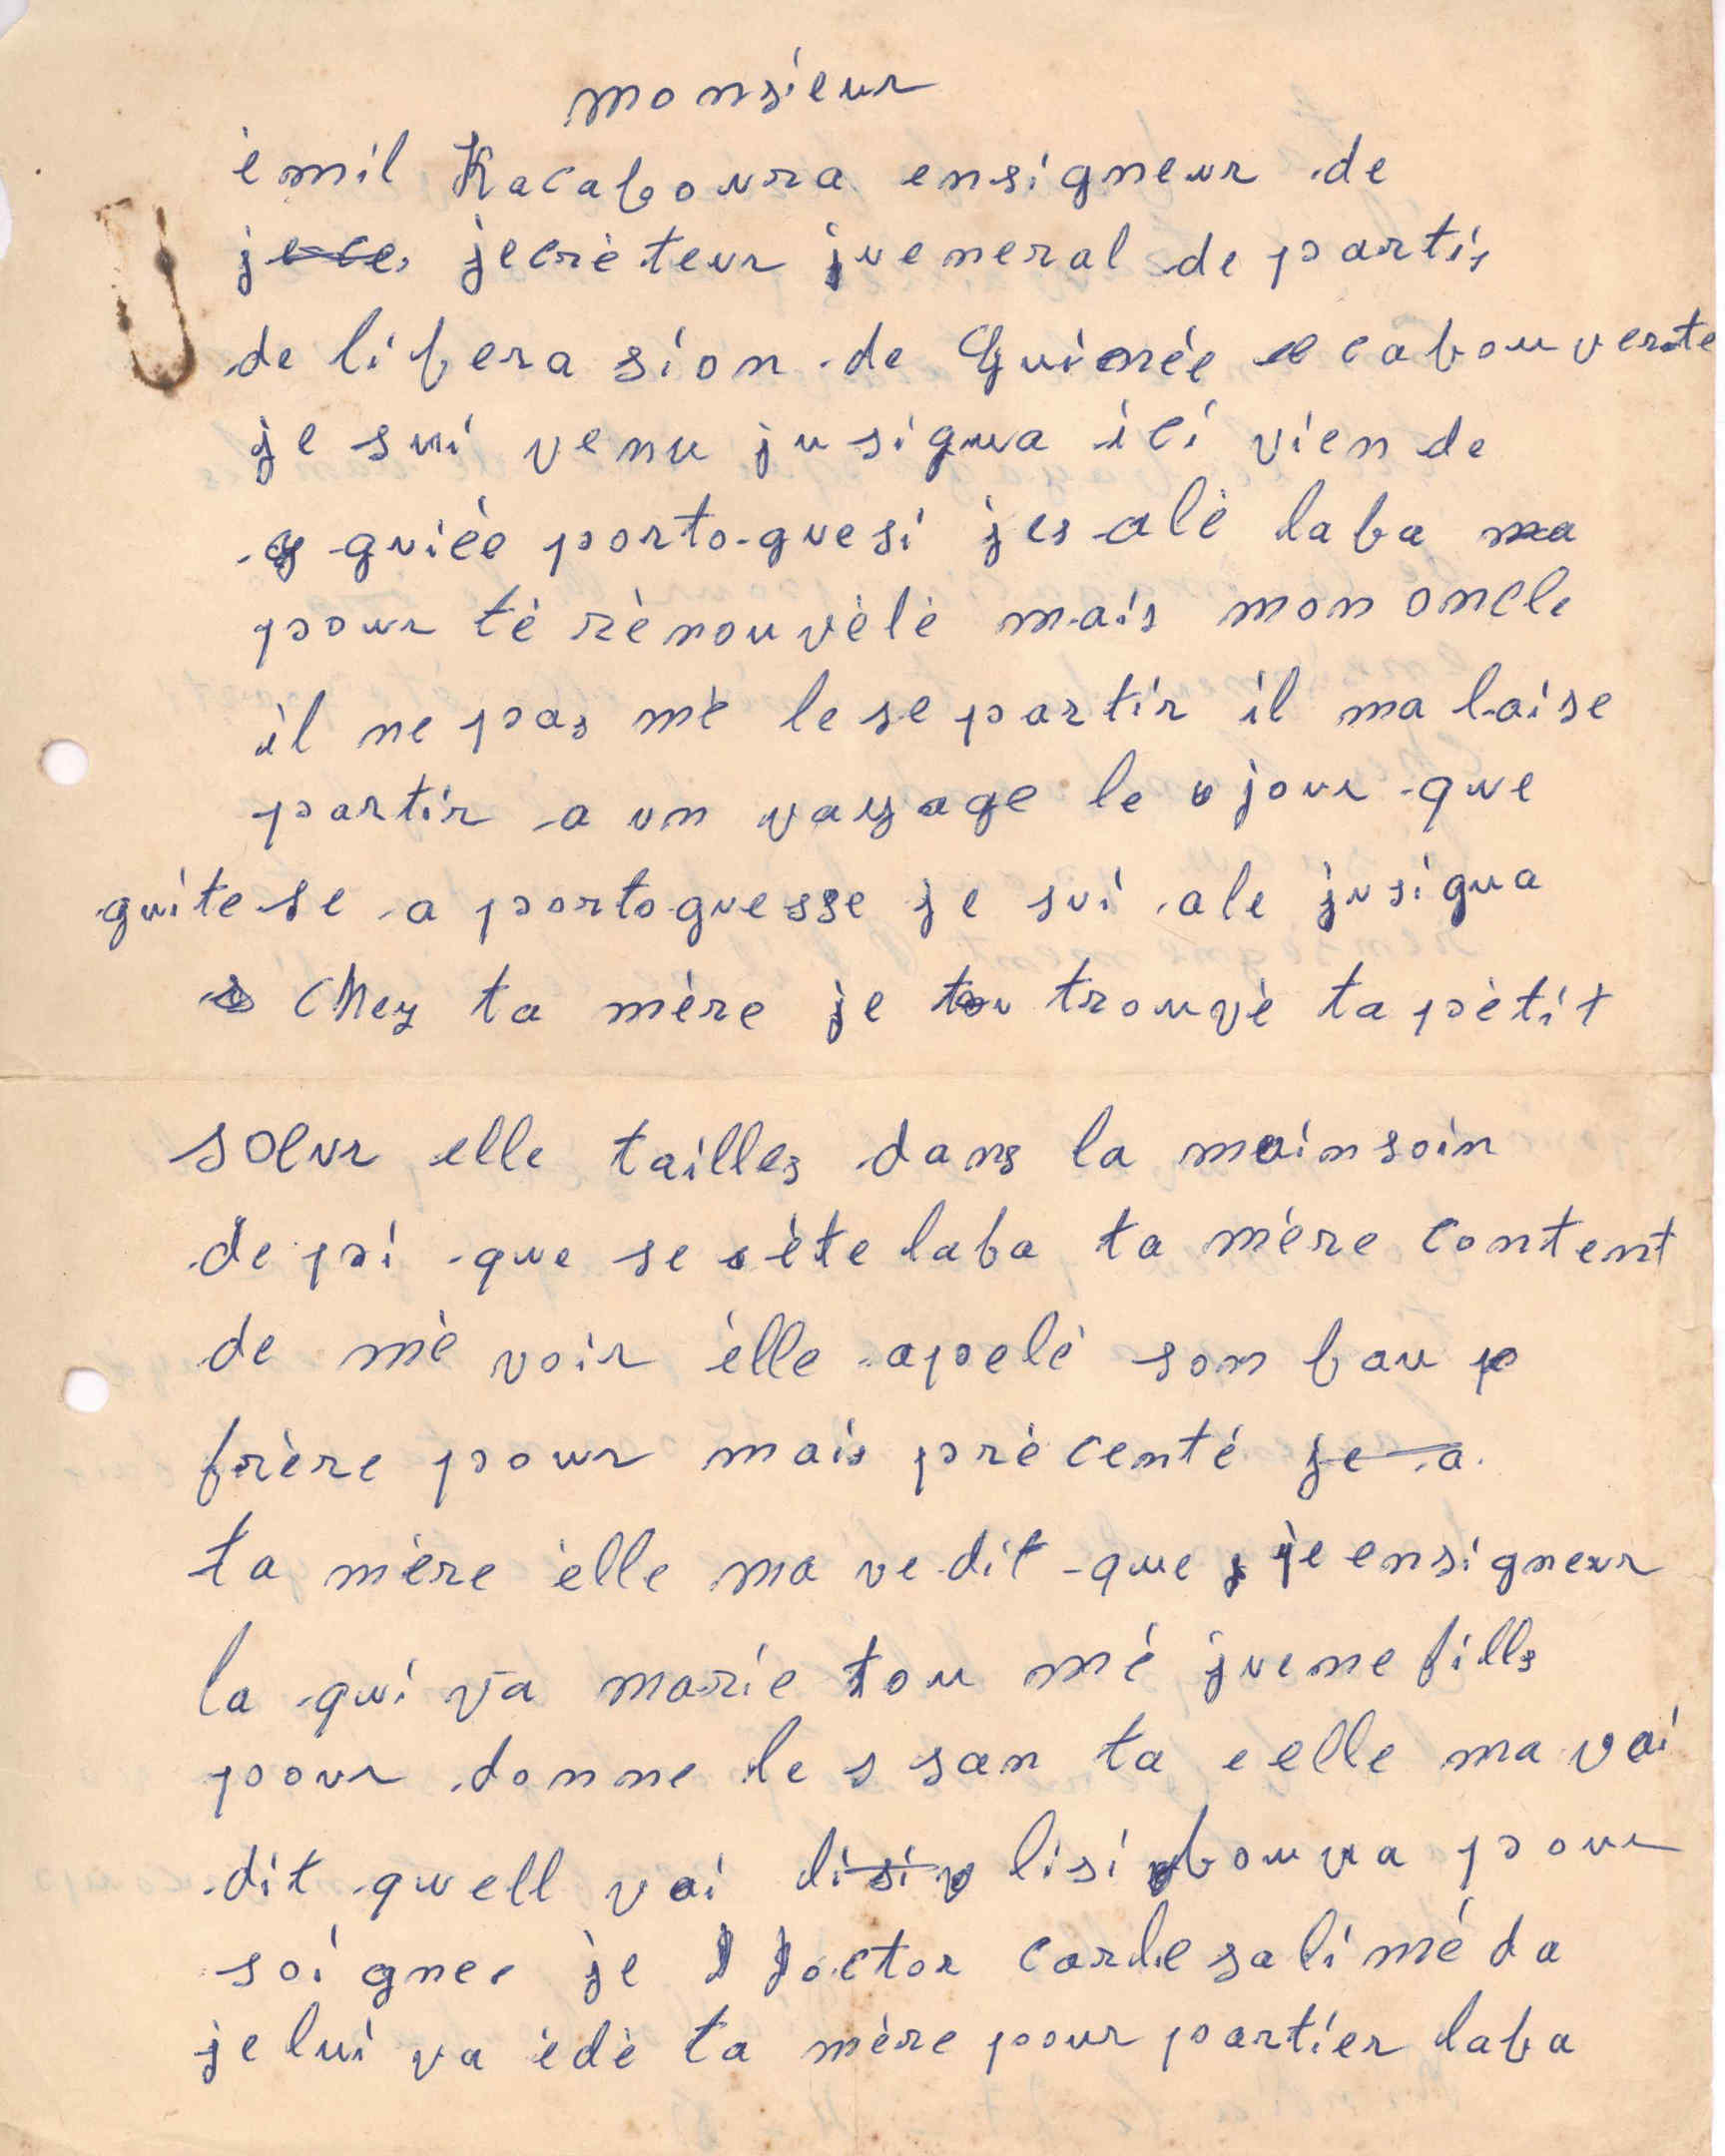 monsieur
èmil Kacaboura ensigneur de
jece jecrèteur jueneral de partis
de liberasion de Guinée e cabouverte
je sui venu jusigua ici vien de
guiée portoguesi jes alè laba ma
pour tè rènouvèlè mais mon oncle
il ne pas mè lese partir il ma laise
partir a un vayage le jour que
guitese a portoguesse je sui ale jusigua
chez ta mère je trouvè ta pètit
soeur elle tailles dans la mainsoin
depi que se ète laba ta mère content
de mè voir èlle apelè son bau p
frère pour mais prècenté je a
ta mère èlle ma vedit que je ensigneur
la qui va marie tou mé juene fills
poour donne le s san ta eelle ma vai
dit quell vai disiv lisi bouua pour
soigner je Doctor carlesaliméda
jelui va èdè ta mère pour partier laba